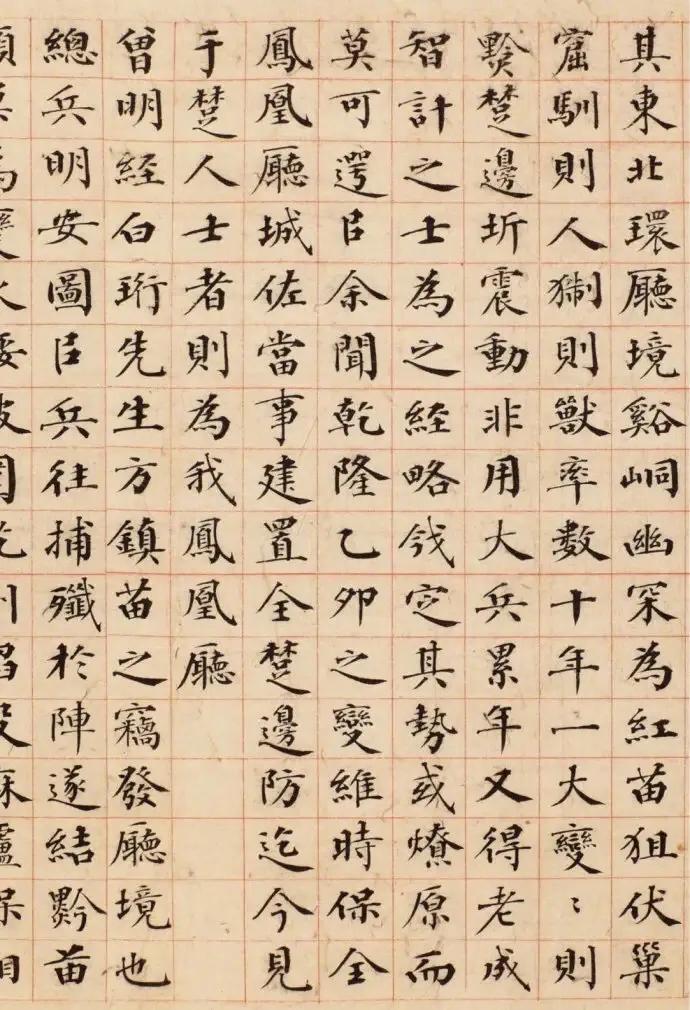 其東北環廳境谿峒幽罙為紅苗狙伏巢
窟馴則人猘則獸率數十年一大變〻則
黔楚邊圻震動非用大兵累年又得老成
智計之士為之經略戡定其勢或燎原而
莫可遌臣余聞乾隆乙卯之變維時保全
鳳凰廳城佐當事建置全楚邊防迄今見
于楚人士者則為我鳳凰廳
曾明經白珩先生方鎮苗之竊發廳境也
總兵明安圖臣兵往捕殲於陣遂結黔苗